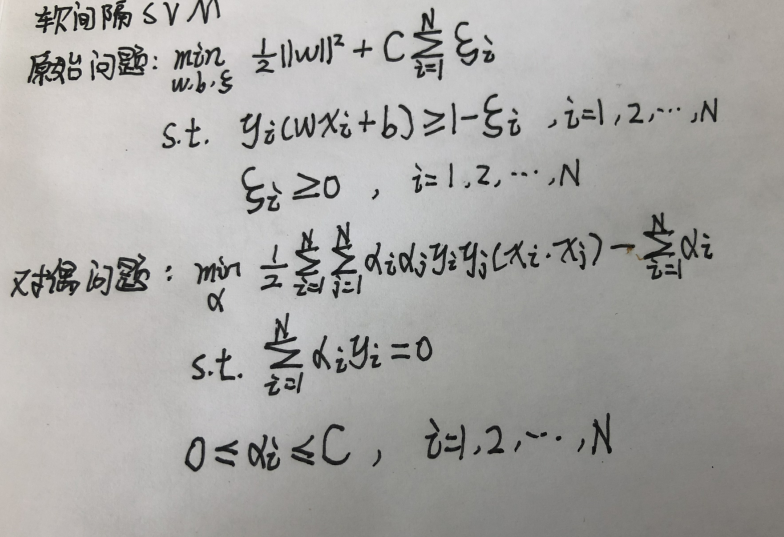 软间隔SVM
原始问题: min w.b.ξ 1/2||w||² + C∑_{i=1}^{N} ξi
s.t. yi(wxi+b)≥1-ξi , i=1,2,…,N
ξi≥0 , i=1,2,…,N
对偶问题: min α 1/2 ∑_{i=1}^{N} ∑_{j=1}^{N} αiαjyiyj(xi·xj) - ∑_{i=1}^{N} αi
s.t. ∑_{i=1}^{N} αiyi=0
0≤αi≤C , i=1,2,…,N